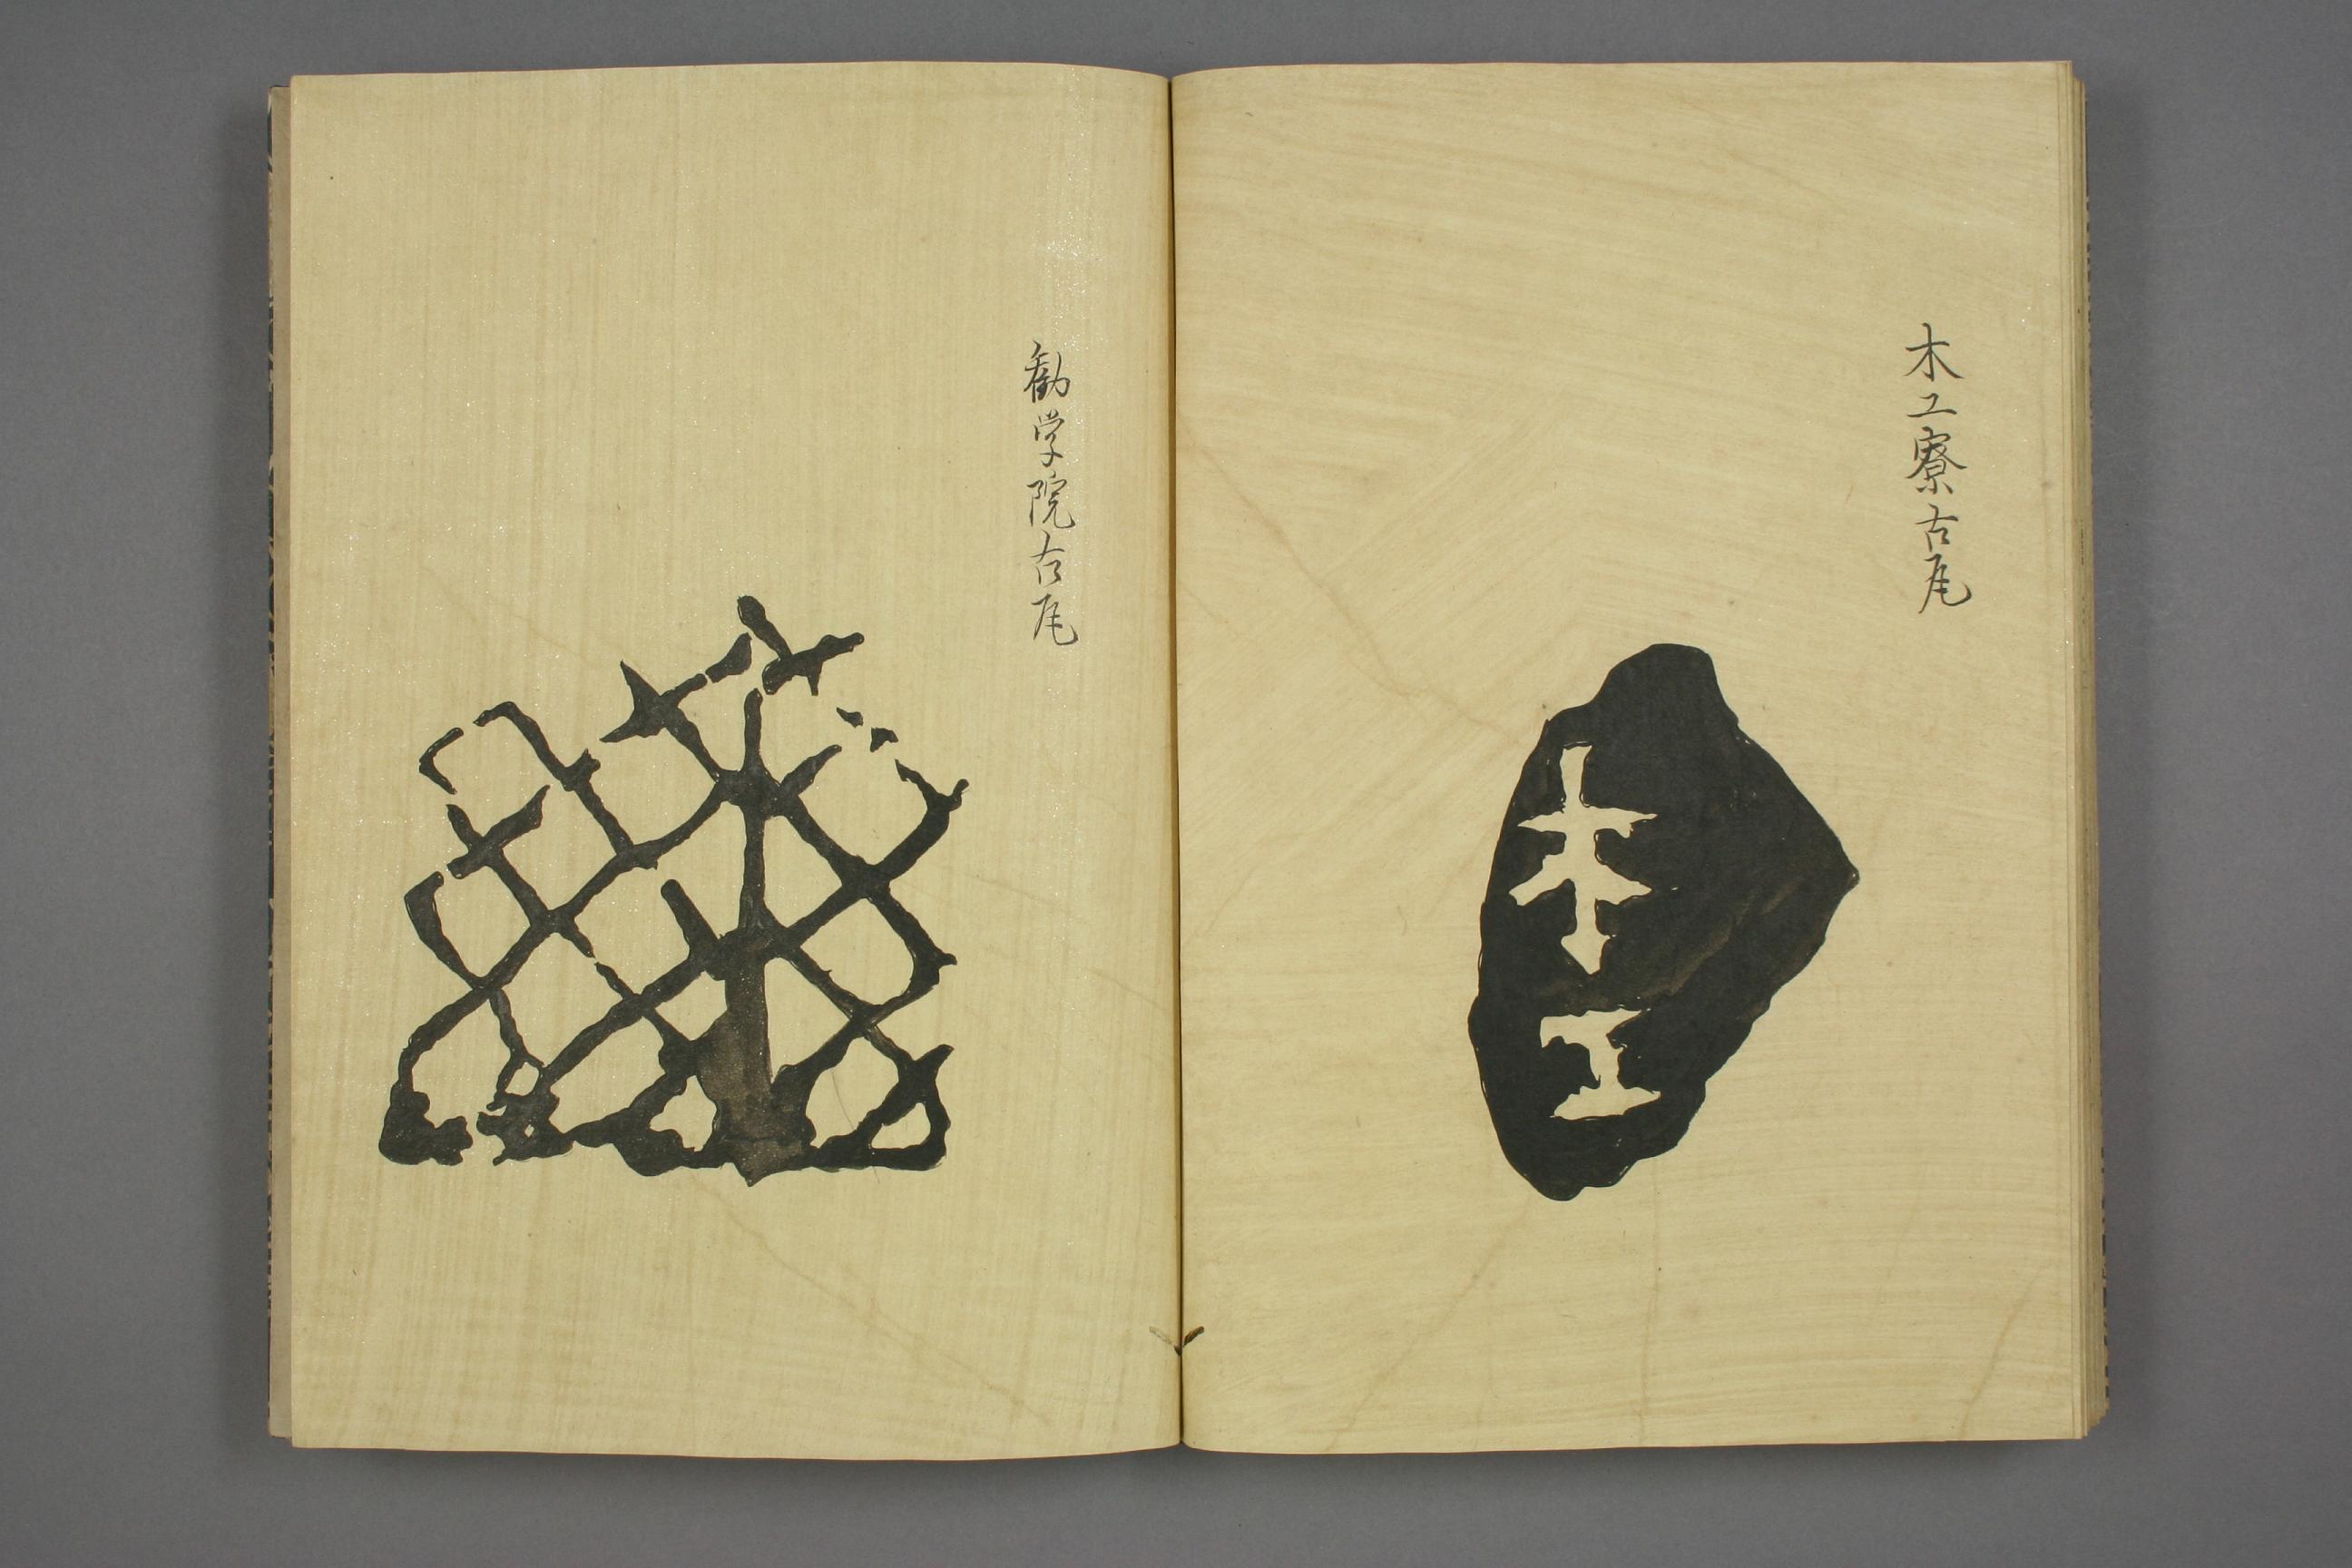 木工寮古瓦
木工
勧学院古瓦